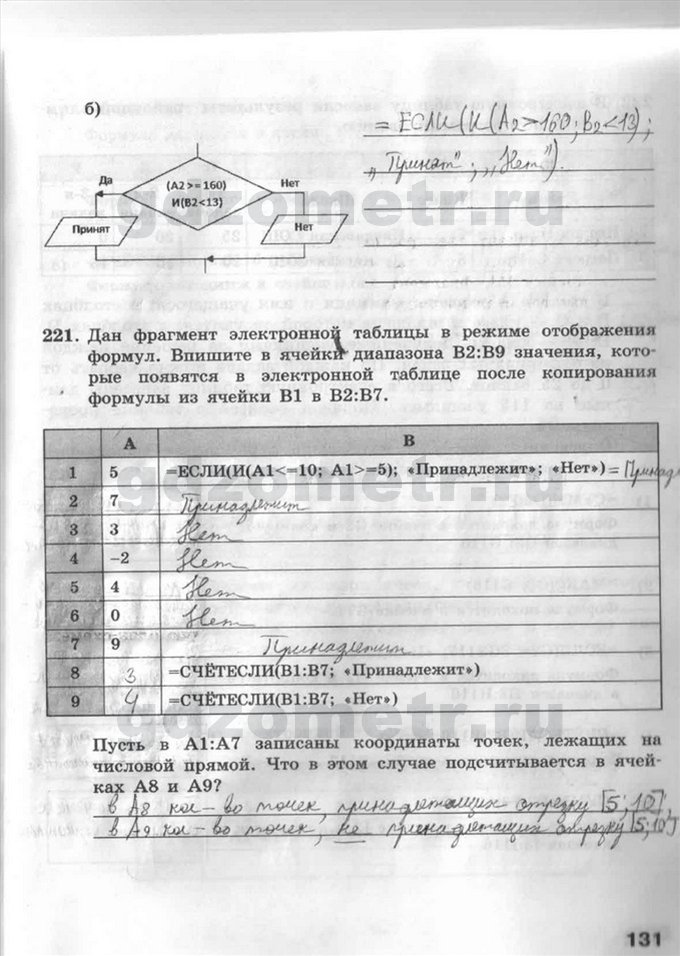 б)
= ЕСЛИ(И(А2>160; В2<13);
„Принят"; „Нет").
Да
(A2>= 160)
И(B2<13)
Нет
Принят
Нет
gdzometr.ru
221. Дан фрагмент электронной таблицы в режиме отображения
формул. Впишите в ячейки диапазона В2:В9 значения, кото-
рые появятся в электронной таблице после копирования
формулы из ячейки В1 в В2:В7.
A B
1 5 =ЕСЛИ(И(А1<=10; А1>=5); «Принадлежит»; «Нет») = Принад
gdzometr.ru
2 7 Принадлежит
3 3 Нет
4 –2 Нет
5 4 Нет
6 0 Нет
7 9 Принадлежит
8 3 =СЧЁТЕСЛИ(В1:В7; «Принадлежит»)
9 4 =СЧЁТЕСЛИ(В1:В7; «Нет»)
gdzometr.ru
Пусть в А1:А7 записаны координаты точек, лежащих на
числовой прямой. Что в этом случае подсчитывается в ячей-
ках А8 и А9?
в А8 кол-во точек, принадлежащих отрезку [5; 10],
в А9 кол-во точек, не принадлежащих отрезку [5; 10]
131